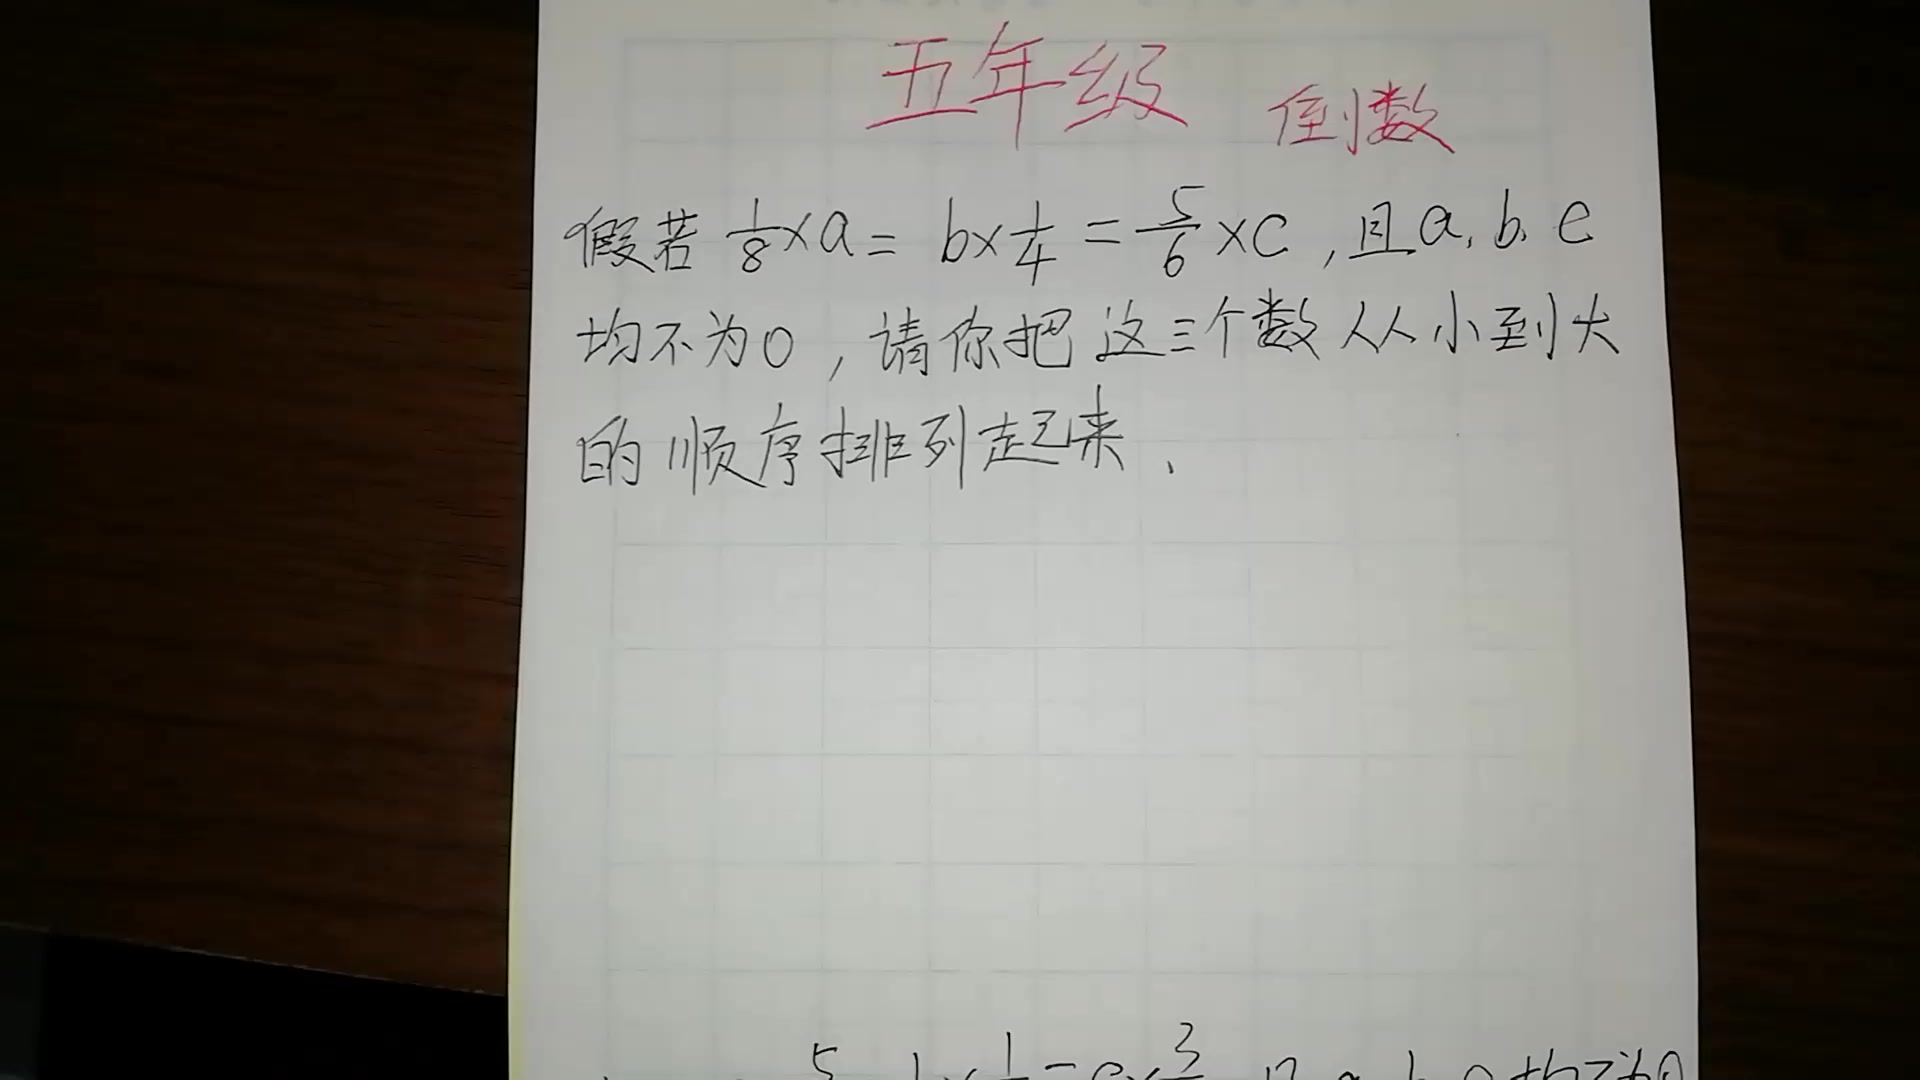 五年级 倒数
假若 1/8×a= b×1/4 = 5/6×c ,且a,b,c
均不为0,请你把这三个数从小到大
的顺序排列起来.
5 b×1 =c×3 且a,b,c均不为0